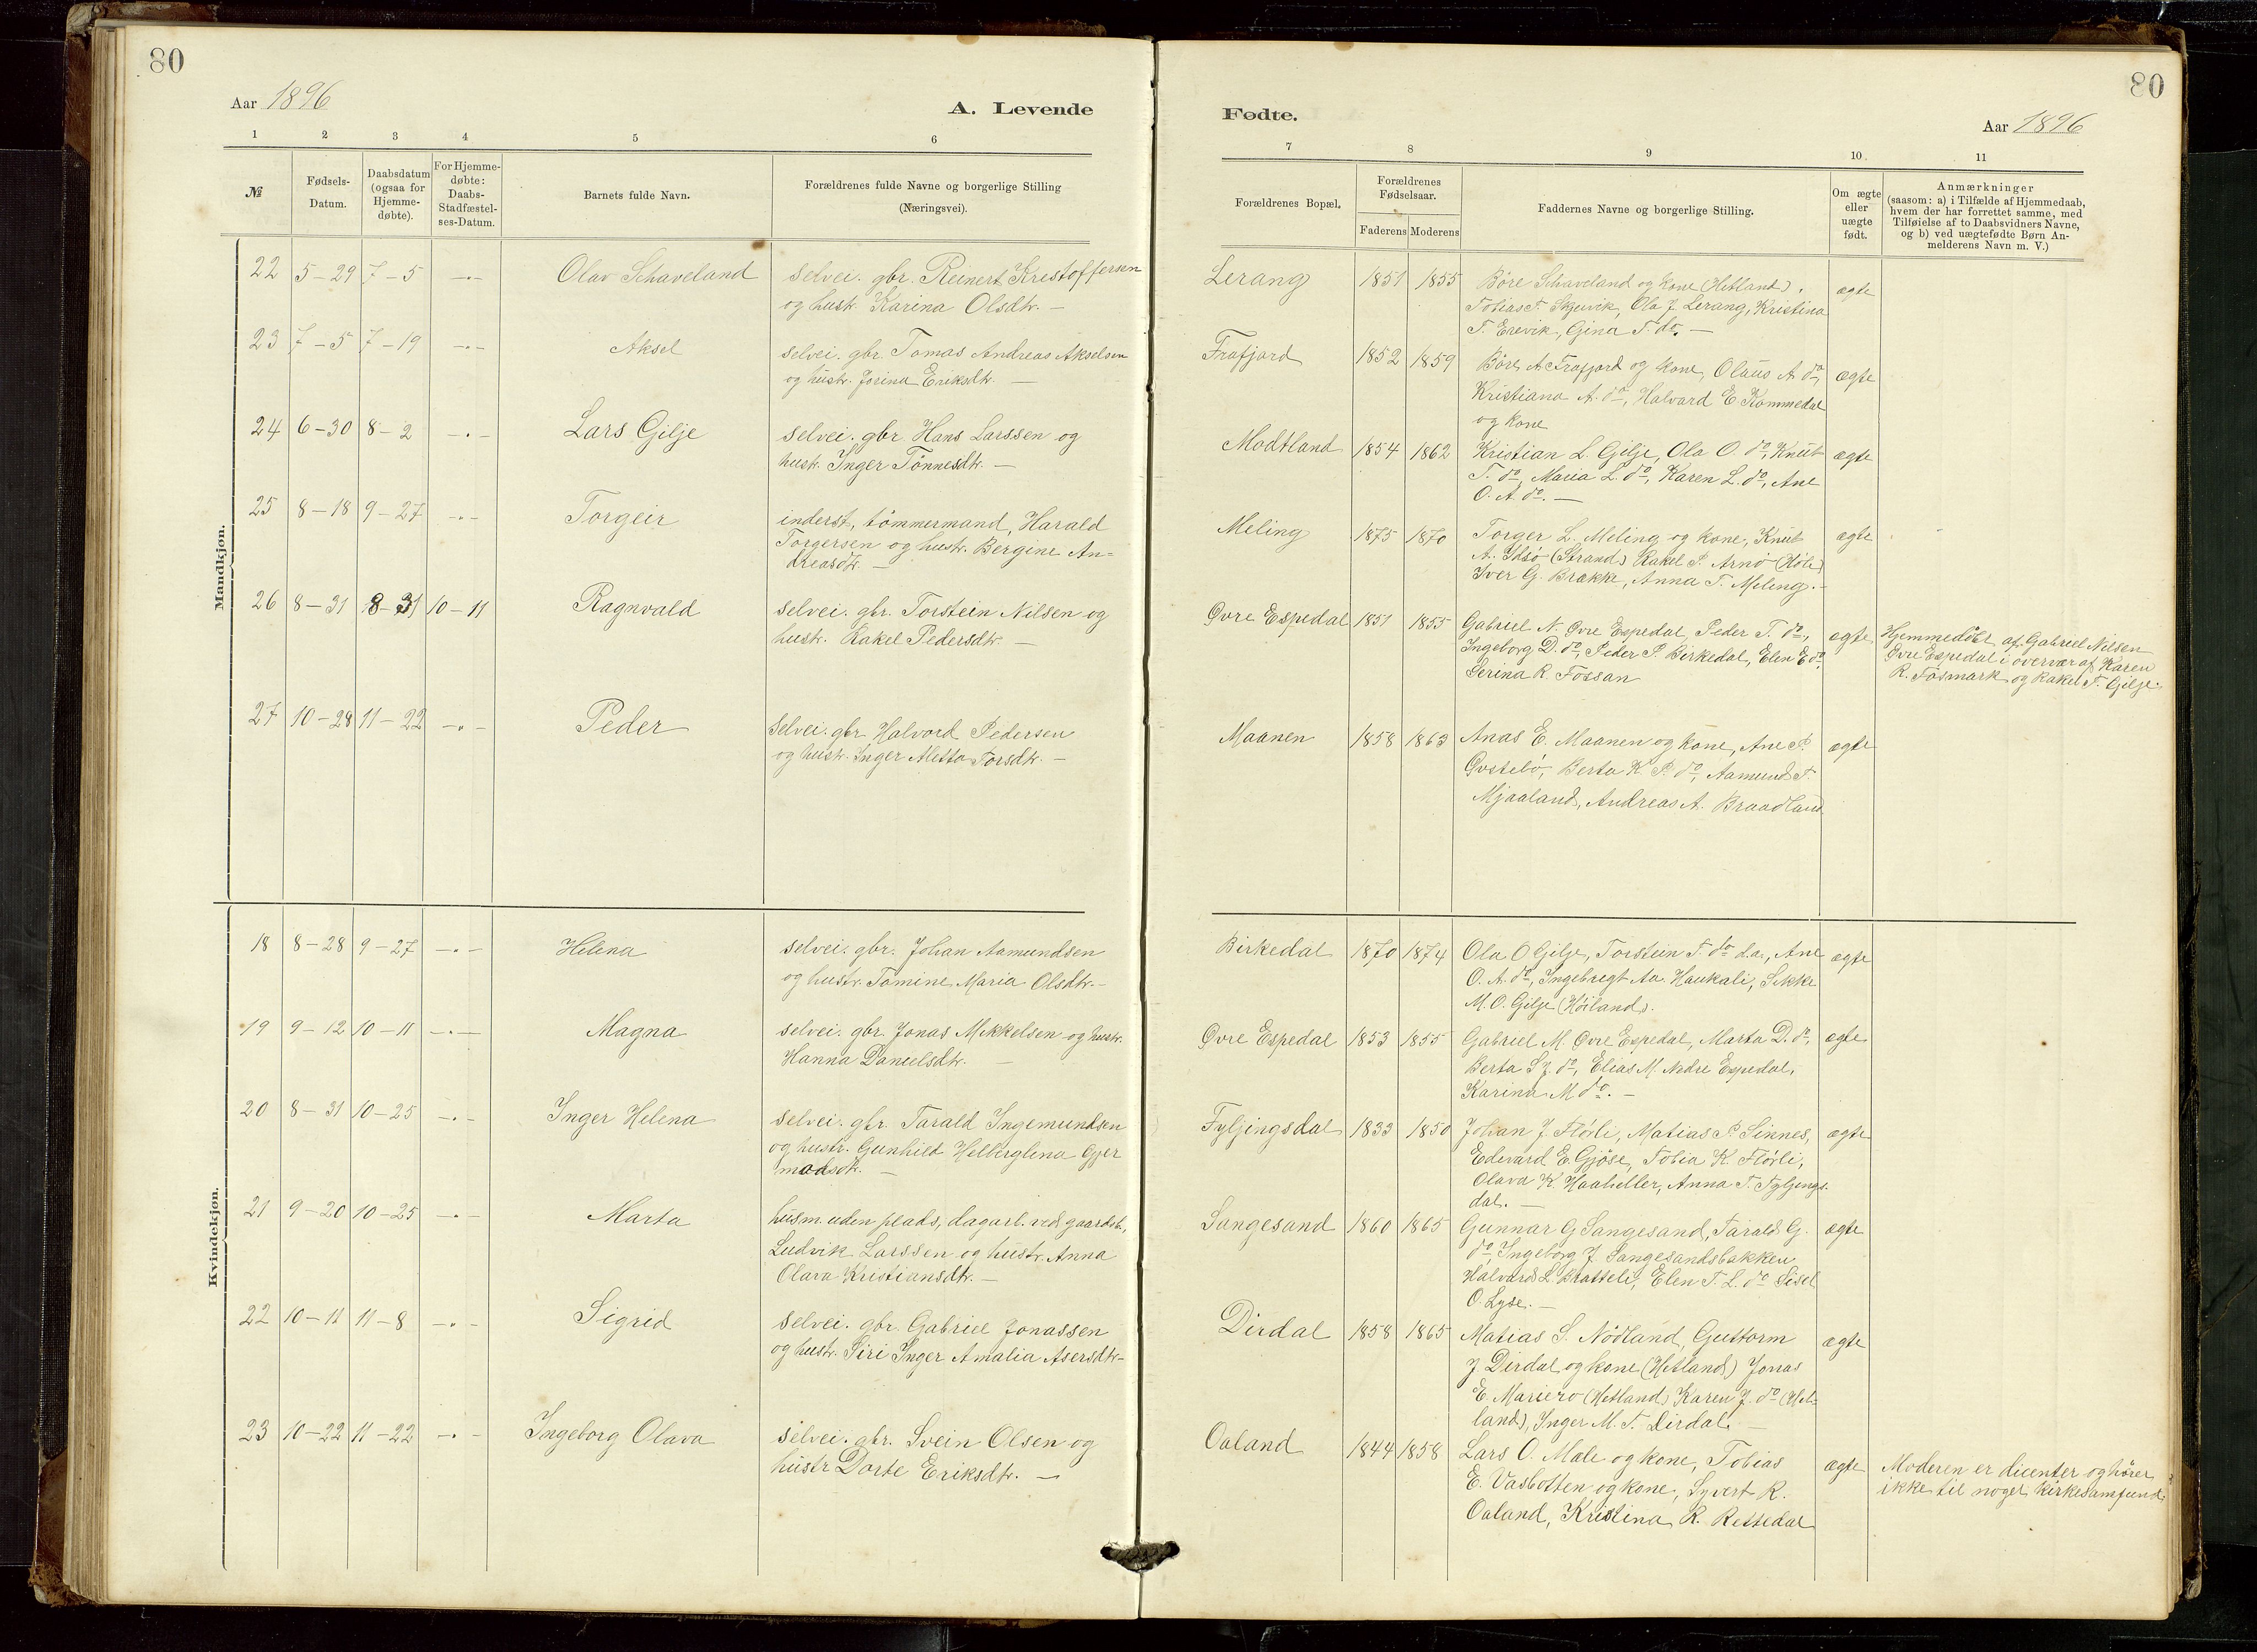 80
80
Aar 1896
A. Levende
Fødte.
Aar 1896
1 2 3 4 5 6
7 8 9 10. 11
№
Fødsels-
Datum.
Daabsdatum
(ogsaa for
Hjemme-
døbte).
For Hjemme-
døbte:
Daabs-
Stadfæstel-
ses-Datum.
Barnets fulde Navn.
Forældrenes fulde Navne og borgerlige Stilling
(Næringsvei).
Forældrenes Bopæl.
Forældrenes
Fødselsaar.
Faderens Moderens
Faddernes Navne og borgerlige Stilling.
Om ægte
eller
uægte
født.
Anmærkninger
(saasom: a) i Tilfælde af Hjemmedaab,
hvem der har forrettet samme, med
Tilføielse af to Daabsvidners Navne,
og b) ved uægtefødte Børn An-
melderens Navn m. V.)
Mandkjøn.
22 5-29 7-5 -"- Olav Schaveland
selvei. gbr. Reinert Krestoffersen
og hustr. Karina Olsdtr. -
Lerang 1851 1855
Böre Schaveland og kone (Hetland),
Tobias T. Skjuvik, Ola J. Lerang, Kristina
T. Erevik, Gina T. do. -
ægte
23 7-5 7-19 -"- Aksel
selvei. gbr. Tomas Andreas Akselsen
og hustr. Jorina Eriksdtr. -
Frafjord 1852 1859
Böre A Frafjord og kone, Olaus A do,
Kristiana A. do, Halvard E. Kommedal
og kone
ægte
24 6-30 8-2 -"- Lars Gilje
selvei. gbr. Hans Larssen og
hustr. Inger Tönnesdtr. -
Modtland 1854 1862
Kristian L. Gilje, Ola O. do, Knut
T. do, Maria L. do, Karen L. do, Ane
O. A. do. -
ægte
25 8-18 9-27 -"- Torgeir
inderst, tömmermand, Harald
Torgersen og hustr. Bergine An=
dreasdtr. -
Meling 1875 1870
Torger L. Meling og kone, Knut
A. Idsö (Strand) Rakel P. Arnö (Höle)
Iver G. Brække, Anna T. Meling. -
ægte
26 8-31 8-31 10-11 Ragnvald
selvei. gbr. Torstein Nilsen og
hustr. Rakel Pedersdtr. -
Øvre Espedal 1851 1855
Gabriel N. Øvre Espedal, Peder T. do,
Ingeborg D. do, Peder P. Birkedal, Elen E do,
Serina R. Fossan
ægte
Hjemmedöbt af Gabriel Nilsen
Øvre Espedal i overvær af Karen
R. Fösmark og Rakel T. Gilje.
27 10-28 11-22 -"- Peder
Selvei. gbr. Halvord Pedersen
og hustr. Inger Aletta Torsdtr. -
Maanen 1858 1863
Anas E. Maanen og kone, Ane P.
Øvstebö, Berta K. P. do, Aamund T.
Mjaaland, Andreas A. Braadland.
ægte
Kvindekjøn.
18 8-28 9-27 -"- Helena
selvei. gbr. Johan Aamundsen
og hustr. Tomine Maria Olsdtr. -
Birkedal 1870 1874
Ola O Gilje, Torstein T. do d.a., Ane
O. A. do, Ingebregt Aa. Haukali, Sikke
M. O. Gilje (Höiland).
ægte
19 9-12 10-11 -"- Magna
selvei. gbr. Jonas Mikkelsen og hustr.
Hanna Danielsdtr. -
Øvre Espedal 1853 1855
Gabriel M. Øvre Espedal, Marta D. do,
Berta S J. do, Elias M. Nedre Espedal,
Karina M do. -
ægte
20 8-31 10-25 -"- Inger Helena
selvei. gbr. Tarald Ingemundsen
og hustr. Gunhild Helberglena Gjer
modsdtr. -
Fyljingsdal 1833 1850
Johan J. Flörli, Matias P. Sinnes,
Edevard E. Gjöse, Tobia K. Flörli,
Olava K. Haaheller, Anna T. Fyljings-
dal. -
ægte
21 9-20 10-25 -"- Marta
husm. uden plads, dagarb. ved gaardsb,
Ludvik Larssen og hustr. Anna
Olava Kristiansdtr. -
Sangesand 1860 1865
Gunnar G Sangesand, Tarald G.
do, Ingeborg J. Sangesandsbakken
Halvard L. Bratteli, Elen T. L. do Sisel
O. Lyse. -
ægte
22 10-11 11-8 -"- Sigrid
selvei. gbr. Gabriel Jonassen
og hustr. Siri Inger Amalia Asersdtr -
Dirdal 1858 1865
Matias S. Nödland, Guttorm
J Dirdal og kone (Hetland) Jonas
E. Mariero (Hetland) Karen J. do (Het-
land), Inger M. T. Dirdal. -
ægte
23 10-22 11-22 -"- Ingeborg Olava
selvei. gbr. Svein Olsen og
hustr Dorte Eriksdtr. -
Oaland 1844 1858
Lars O. Mæle og kone, Tobias
E. Vasbotten og kone, Syvert R.
Oaland, Kristina R. Rettedal
ægte
Moderen er dicenter og hörer
ikke til noget kirkesamfund.